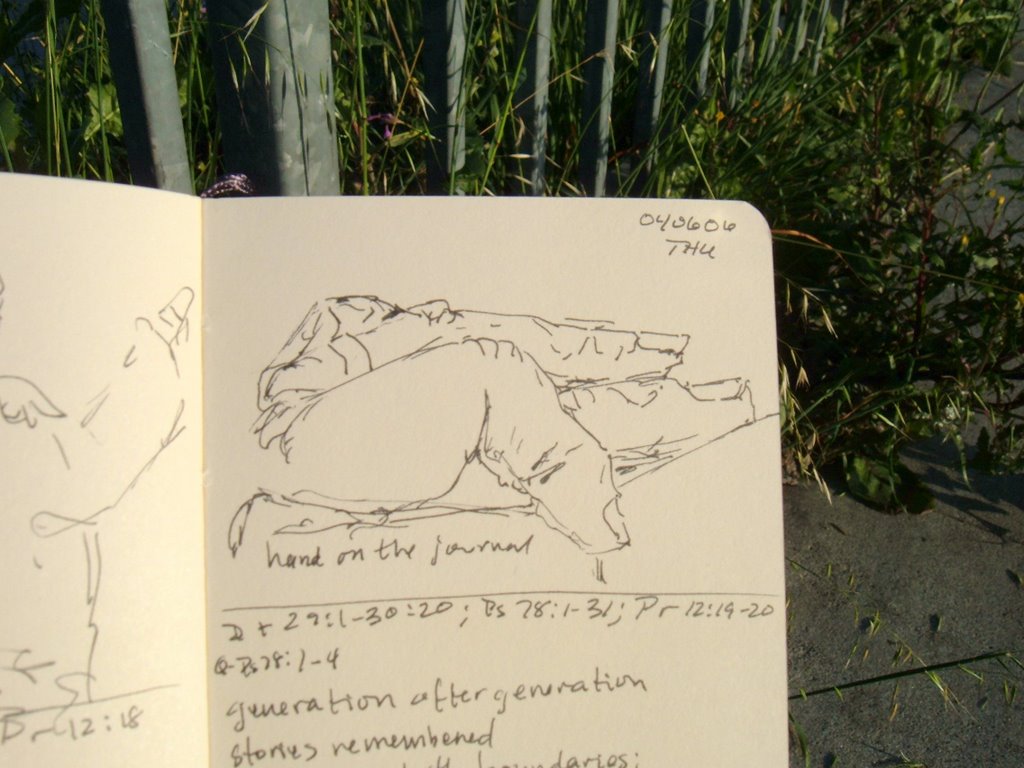 Pr 12:18
040606
THU
hand on the journal
Dt 29:1-30:20; Ps 78:1-31; Pr 12:19-20
Q-Ps 78:1-4
generation after generation
stories remembered
boundaries;